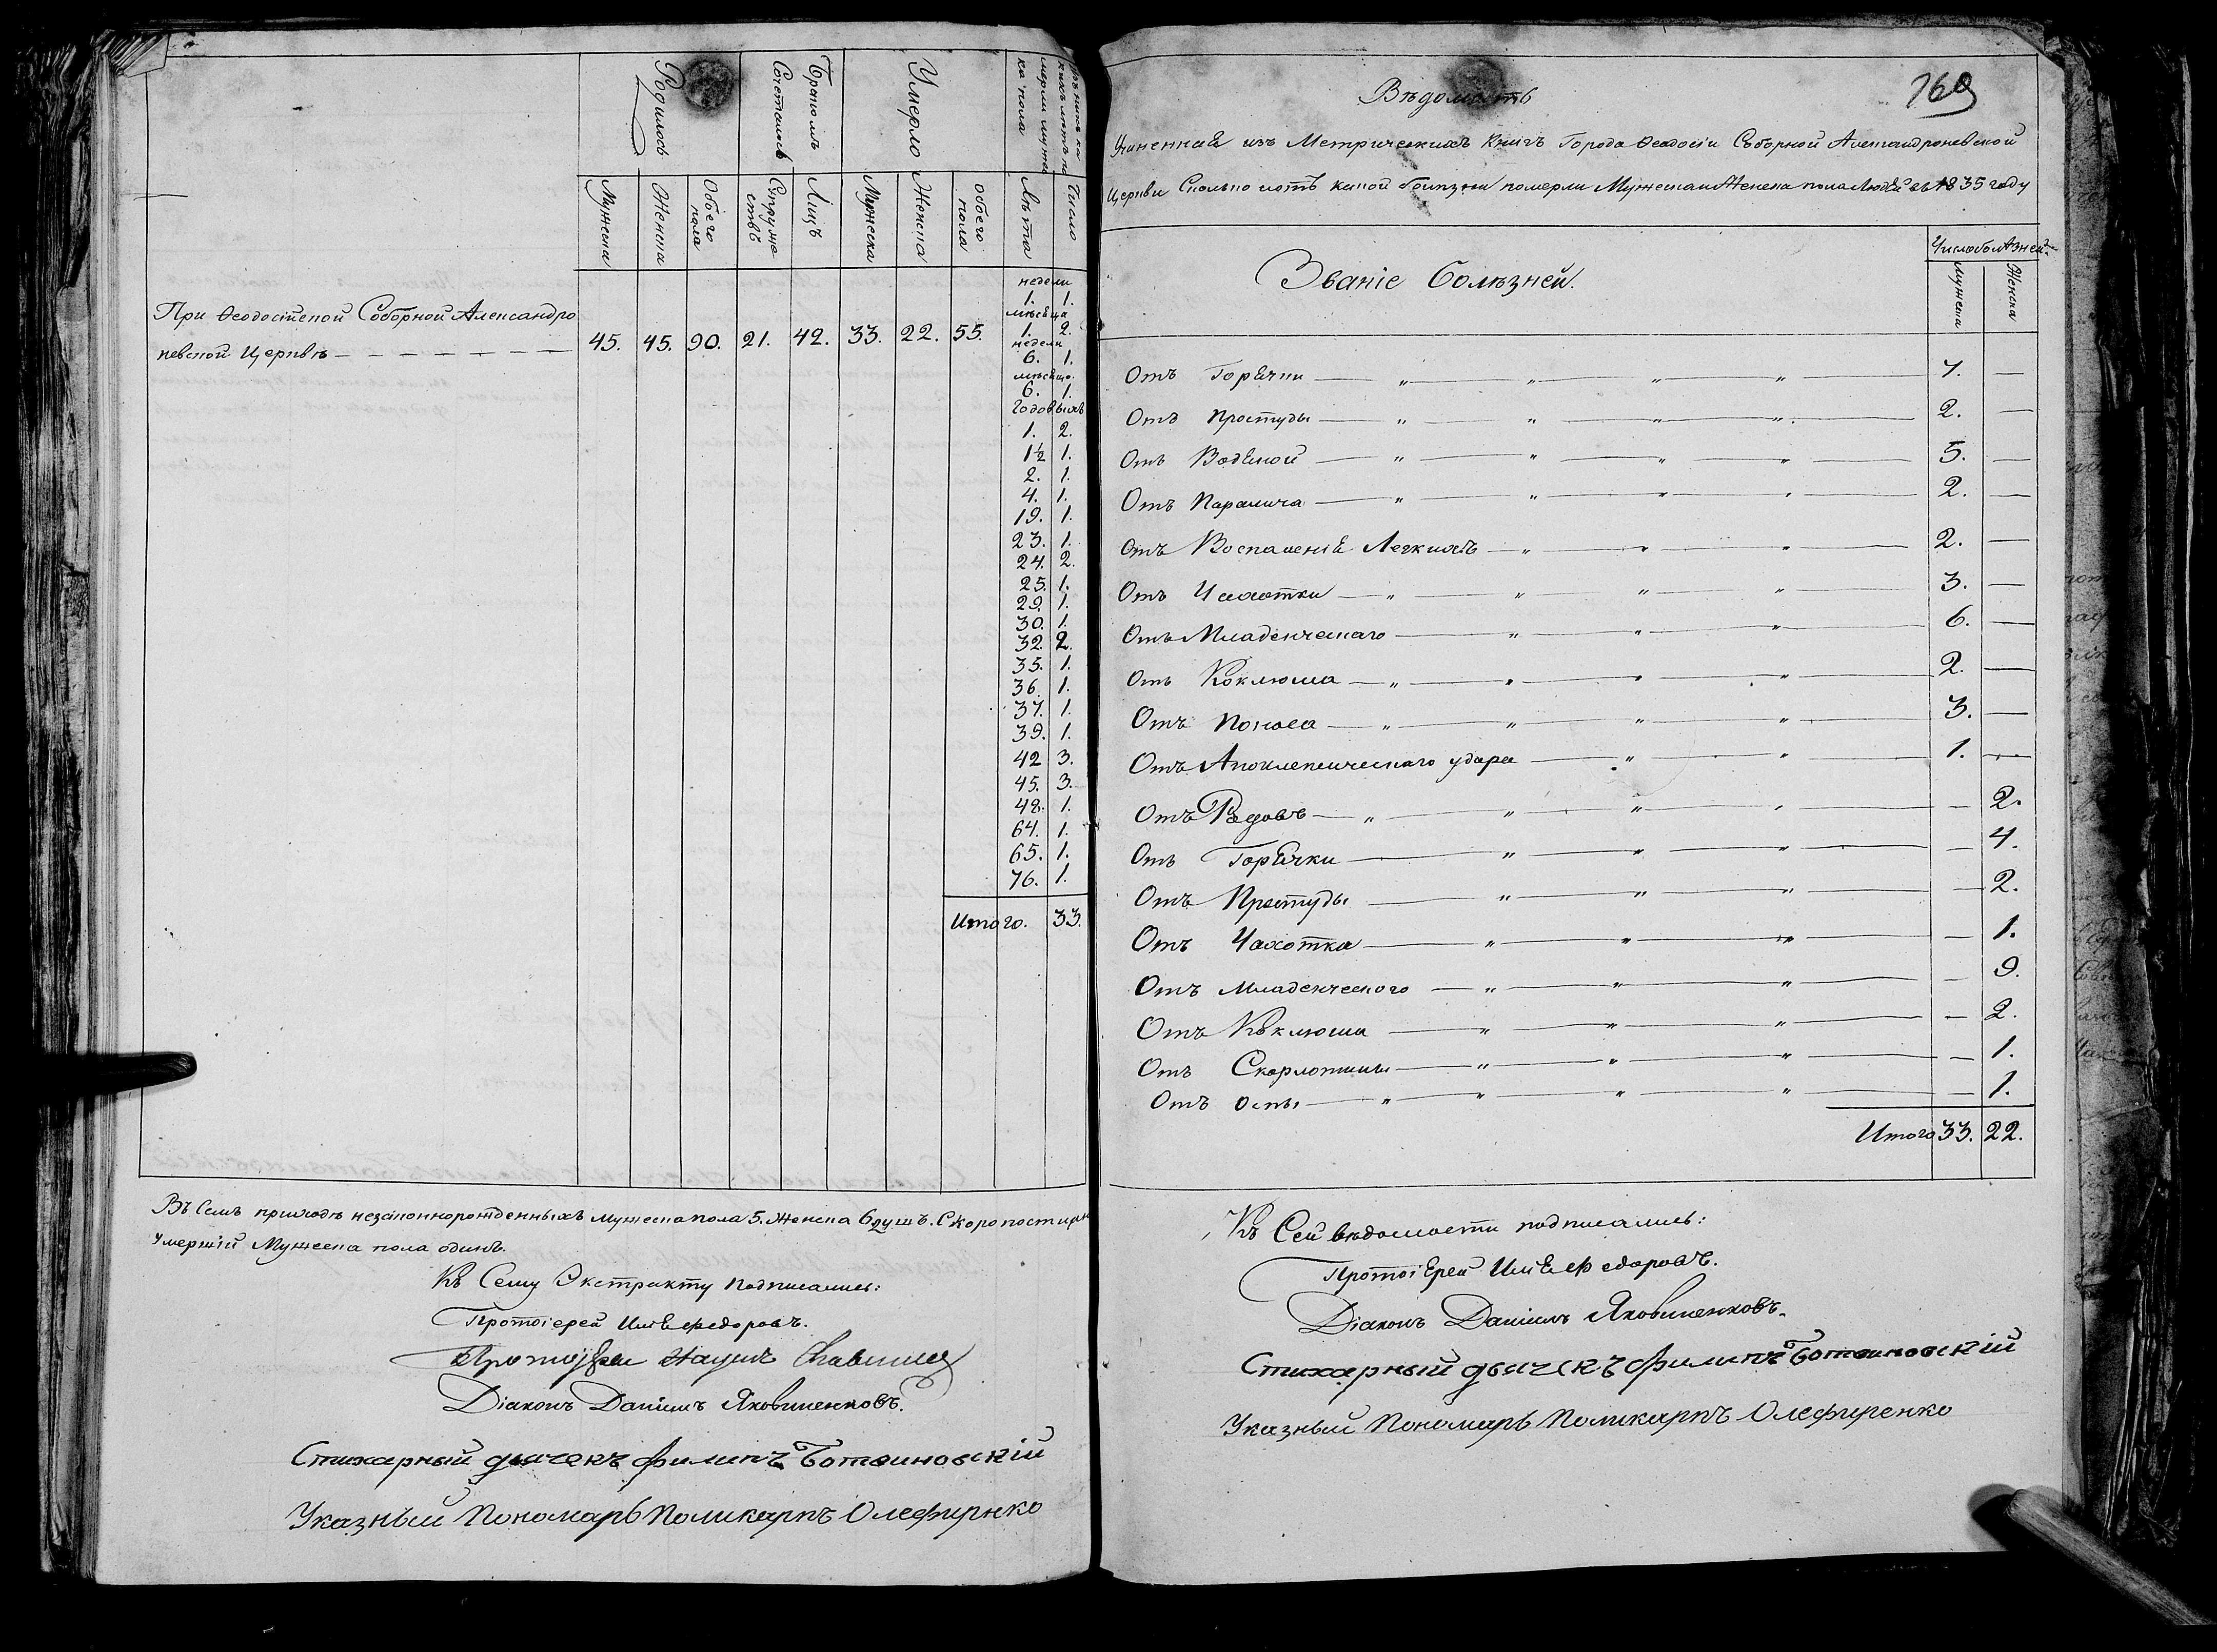 Родилось
Бракомъ Сочеталось
Умерло
Мужеска
Женска
Обоего пола
Супружествъ
Лицъ
Мужеска
Женска
обоего пола
Лѣта
Число
недели
1. 1.
мѣсеца
При Ѳеодосійской Соборной Александро
1. 2.
невской Церквѣ — 45. 45. 90. 21. 42. 33. 22. 55.
недели
6. 1.
мѣсецо.
6. 1.
Годовыхъ
1. 2.
1½ 1.
2. 1.
4. 1.
19. 1.
23. 1.
24. 2.
25. 1.
29. 1.
30. 1.
32. 2.
35. 1.
36. 1.
37. 1.
39. 1.
42 3.
45. 3.
48. 1.
64. 1.
65. 1.
76. 1.
Итого. 33.
Въ Семъ приходѣ незаконнорожденныхъ мужеска пола 5. Женска 6 душъ. Скоропостижн
Умершій Мужеска пола одинъ.
Къ Сему Экстракту подписались:
Протоіерей Илія Федоровъ.
Діаконъ Даніилъ Яковленковъ.
Стихарный дьячекъ Филипъ Ботвиновскій
Указный Пономарь Поликарпъ Олефирнко
169
Вѣдомость
Учиненная изъ Метрическихъ Книгъ Города Ѳеодосіи Соборной Александроневской
Церкви Сколько отъ какой болѣзни померли Мужеска и Женска пола Людей въ 1835 году
Званіе болѣзней.
Число болѣзней
Мужеска
Женска
Отъ Горячки — 7. —
Отъ Простуды — 2. —
Отъ Водяной — 5. —
Отъ Паралича — 2. —
Отъ Воспаленія Легкихъ — 2. —
Отъ Чахотки — 3. —
Отъ Младенческаго — 6. —
Отъ Коклюша — 2. —
Отъ Поноса — 3. —
Отъ Апоплексическаго удара — 1. —
Отъ Родовъ — — 2.
Отъ Горячки — — 4.
Отъ Простуды — — 2.
Отъ Чахотка — — 1.
Отъ Младенческого — — 9.
Отъ Коклюша — — 2.
Отъ Скорлотины — — 1.
Отъ оспы — — 1.
Итого 33. 22.
Къ Сей вѣдомости подписались:
Протоіерей Илія Федоровъ.
Діаконъ Даніилъ Яковленковъ.
Стихарный дьячекъ Филипъ Ботвиновскій
Указный Пономарь Поликарпъ Олефиренко